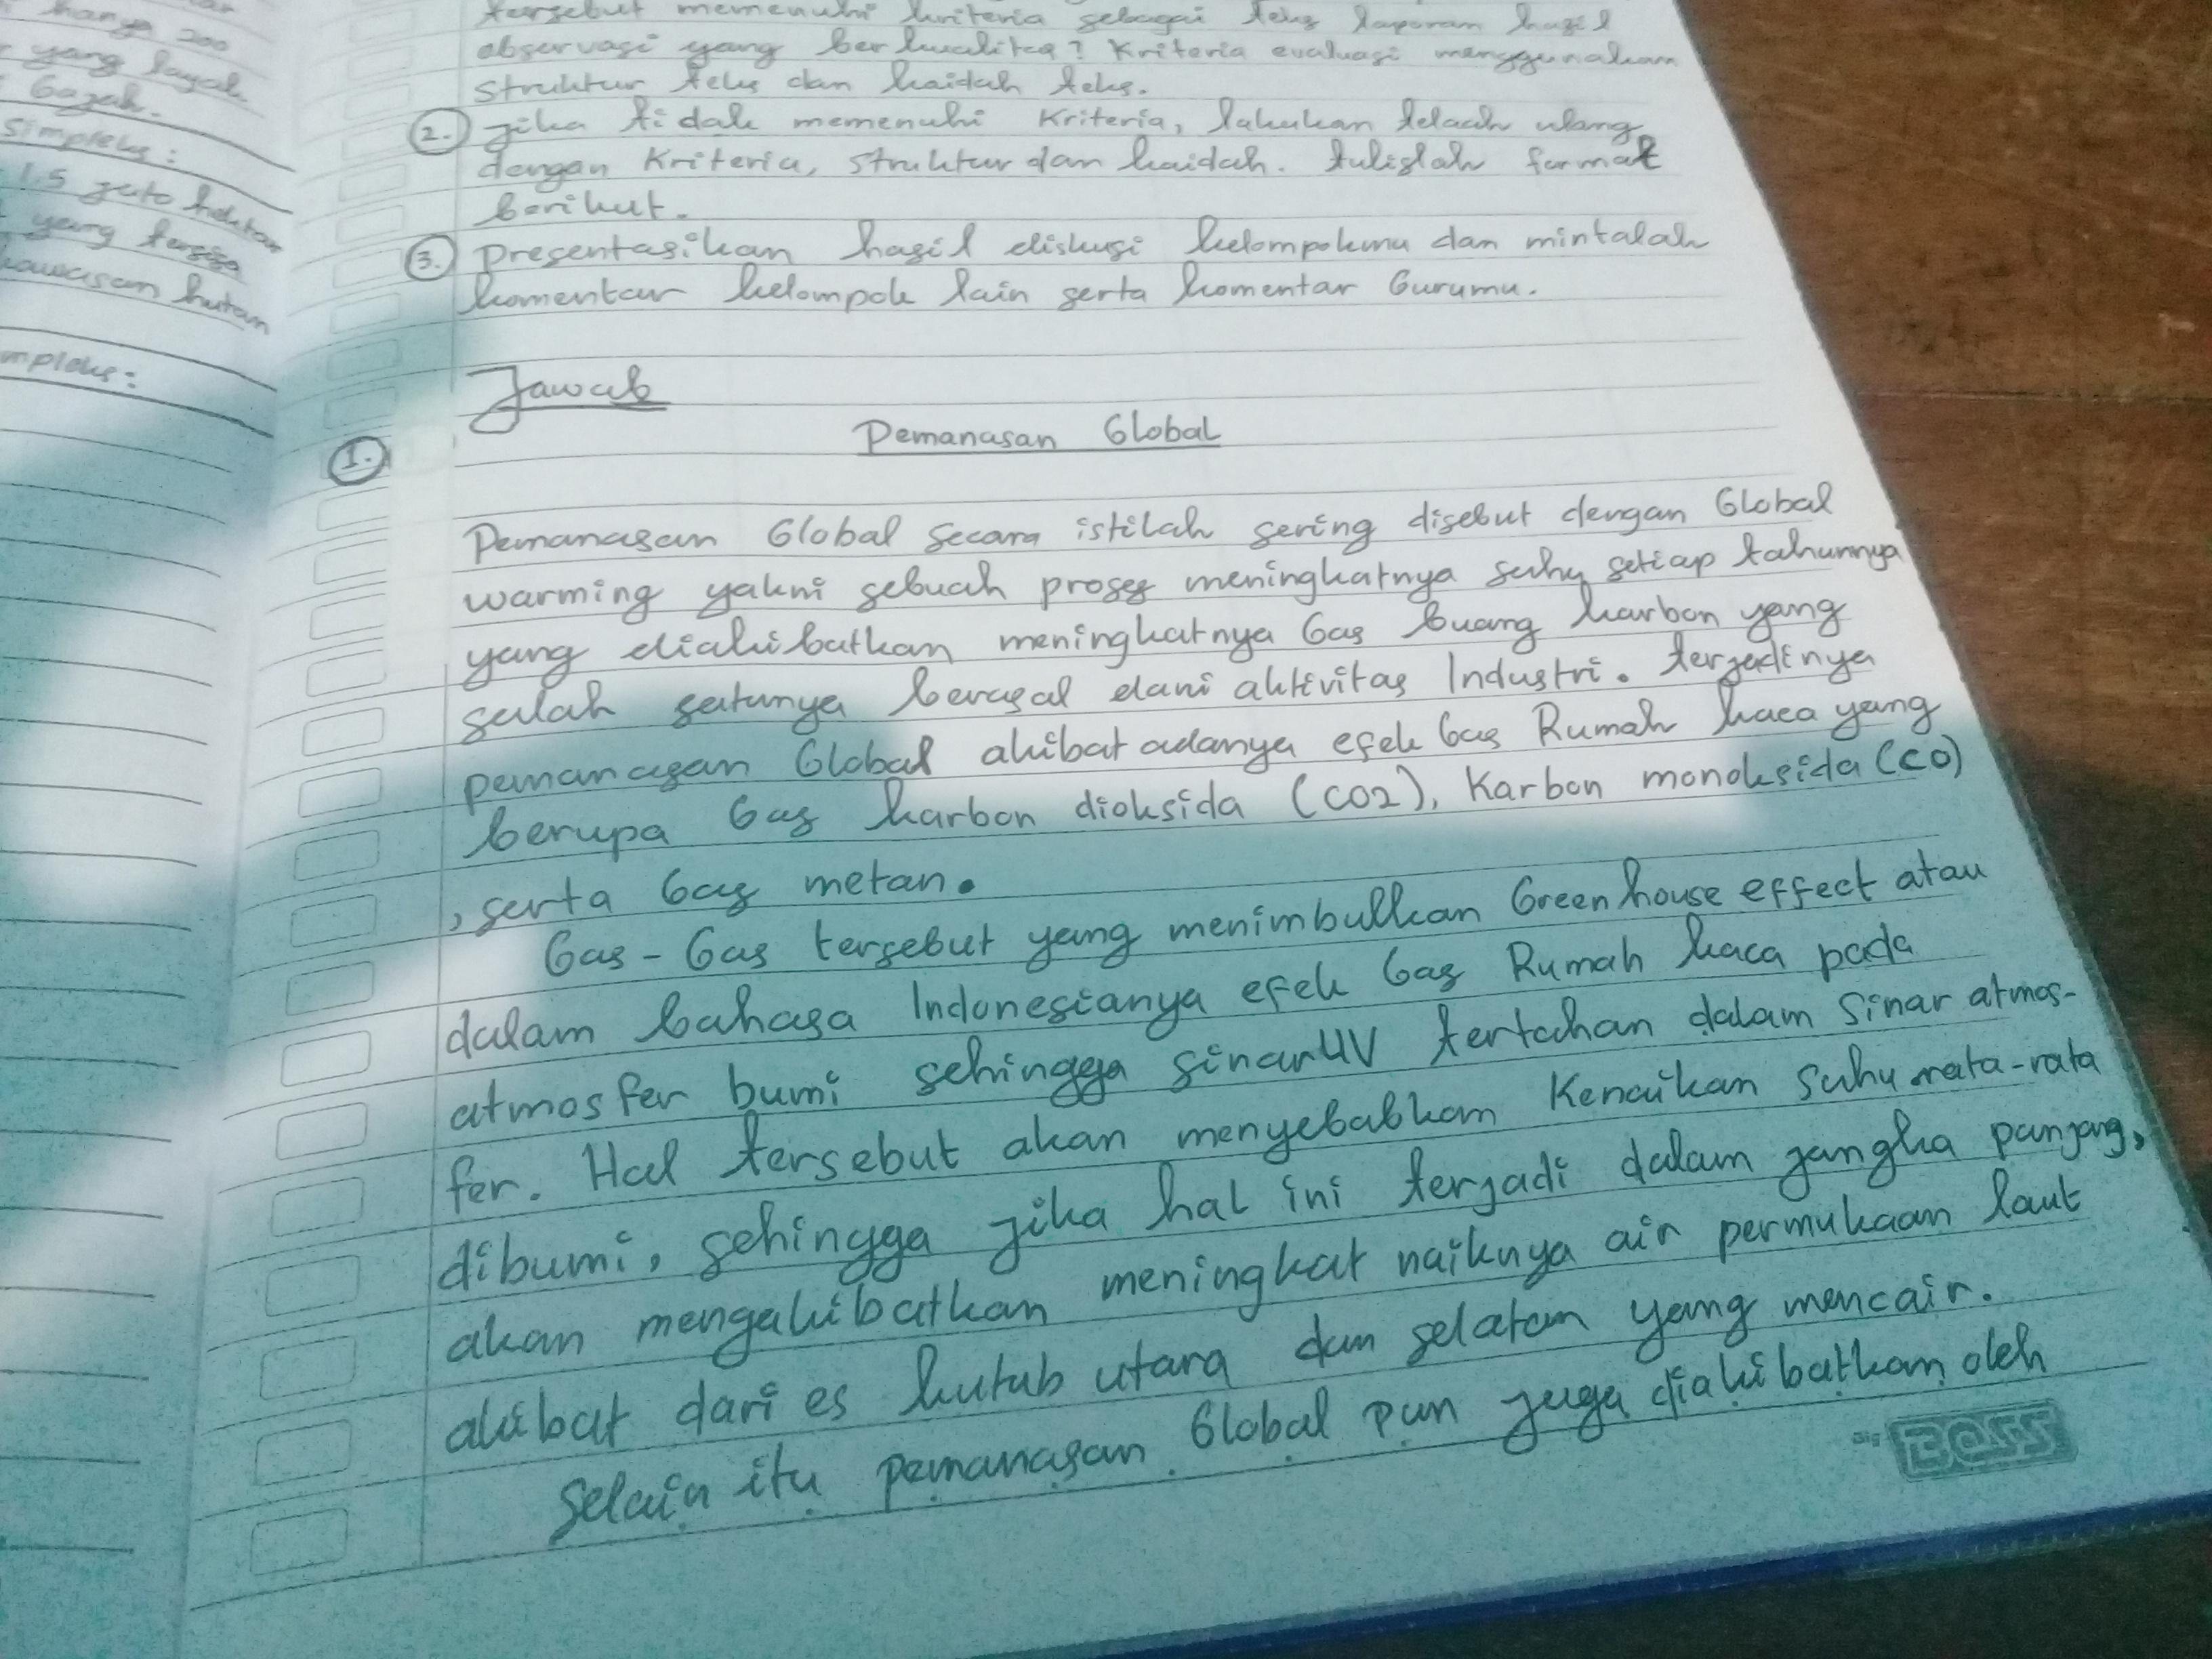 hanya 200
yang layak
Gajah.
Simpleks:
1.5 juta hektar
yang tersisa
kawasan hutan
mpleks:
tersebut memenuhi kriteria sebagai teks laporan hasil
observasi yang berkualitas? Kriteria evaluasi menggunakan
struktur teks dan kaidah teks.
2. jika tidak memenuhi Kriteria, lakukan telaah ulang
dengan Kriteria, struktur dan kaidah. tulislah format
berikut.
3. presentasikan hasil diskusi kelompokmu dan mintalah
komentar kelompok lain serta komentar Gurumu.
Jawab
Pemanasan Global
1.
Pemanasan Global secara istilah sering disebut dengan Global
warming yakni sebuah proses meningkatnya suhu setiap tahunnya
yang diakibatkan meningkatnya Gas buang karbon yang
salah satunya berasal dari aktivitas Industri. terjadinya
pemanasan Global akibat adanya efek Gas Rumah kaca yang
berupa Gas karbon dioksida (CO2), Karbon monoksida (CO)
, serta Gas metan.
Gas-Gas tersebut yang menimbulkan Greenhouse effect atau
dalam bahasa Indonesianya efek Gas Rumah kaca pada
atmosfer bumi sehingga sinar UV tertahan dalam Sinar atmos-
fer. Hal tersebut akan menyebabkan Kenaikan Suhu rata-rata
dibumi, sehingga jika hal ini terjadi dalam jangka panjang,
akan mengakibatkan meningkat naiknya air permukaan laut
akibat dari es kutub utara dan selatan yang mencair.
Selain itu pemanasan Global pun juga diakibatkan oleh
BOSS